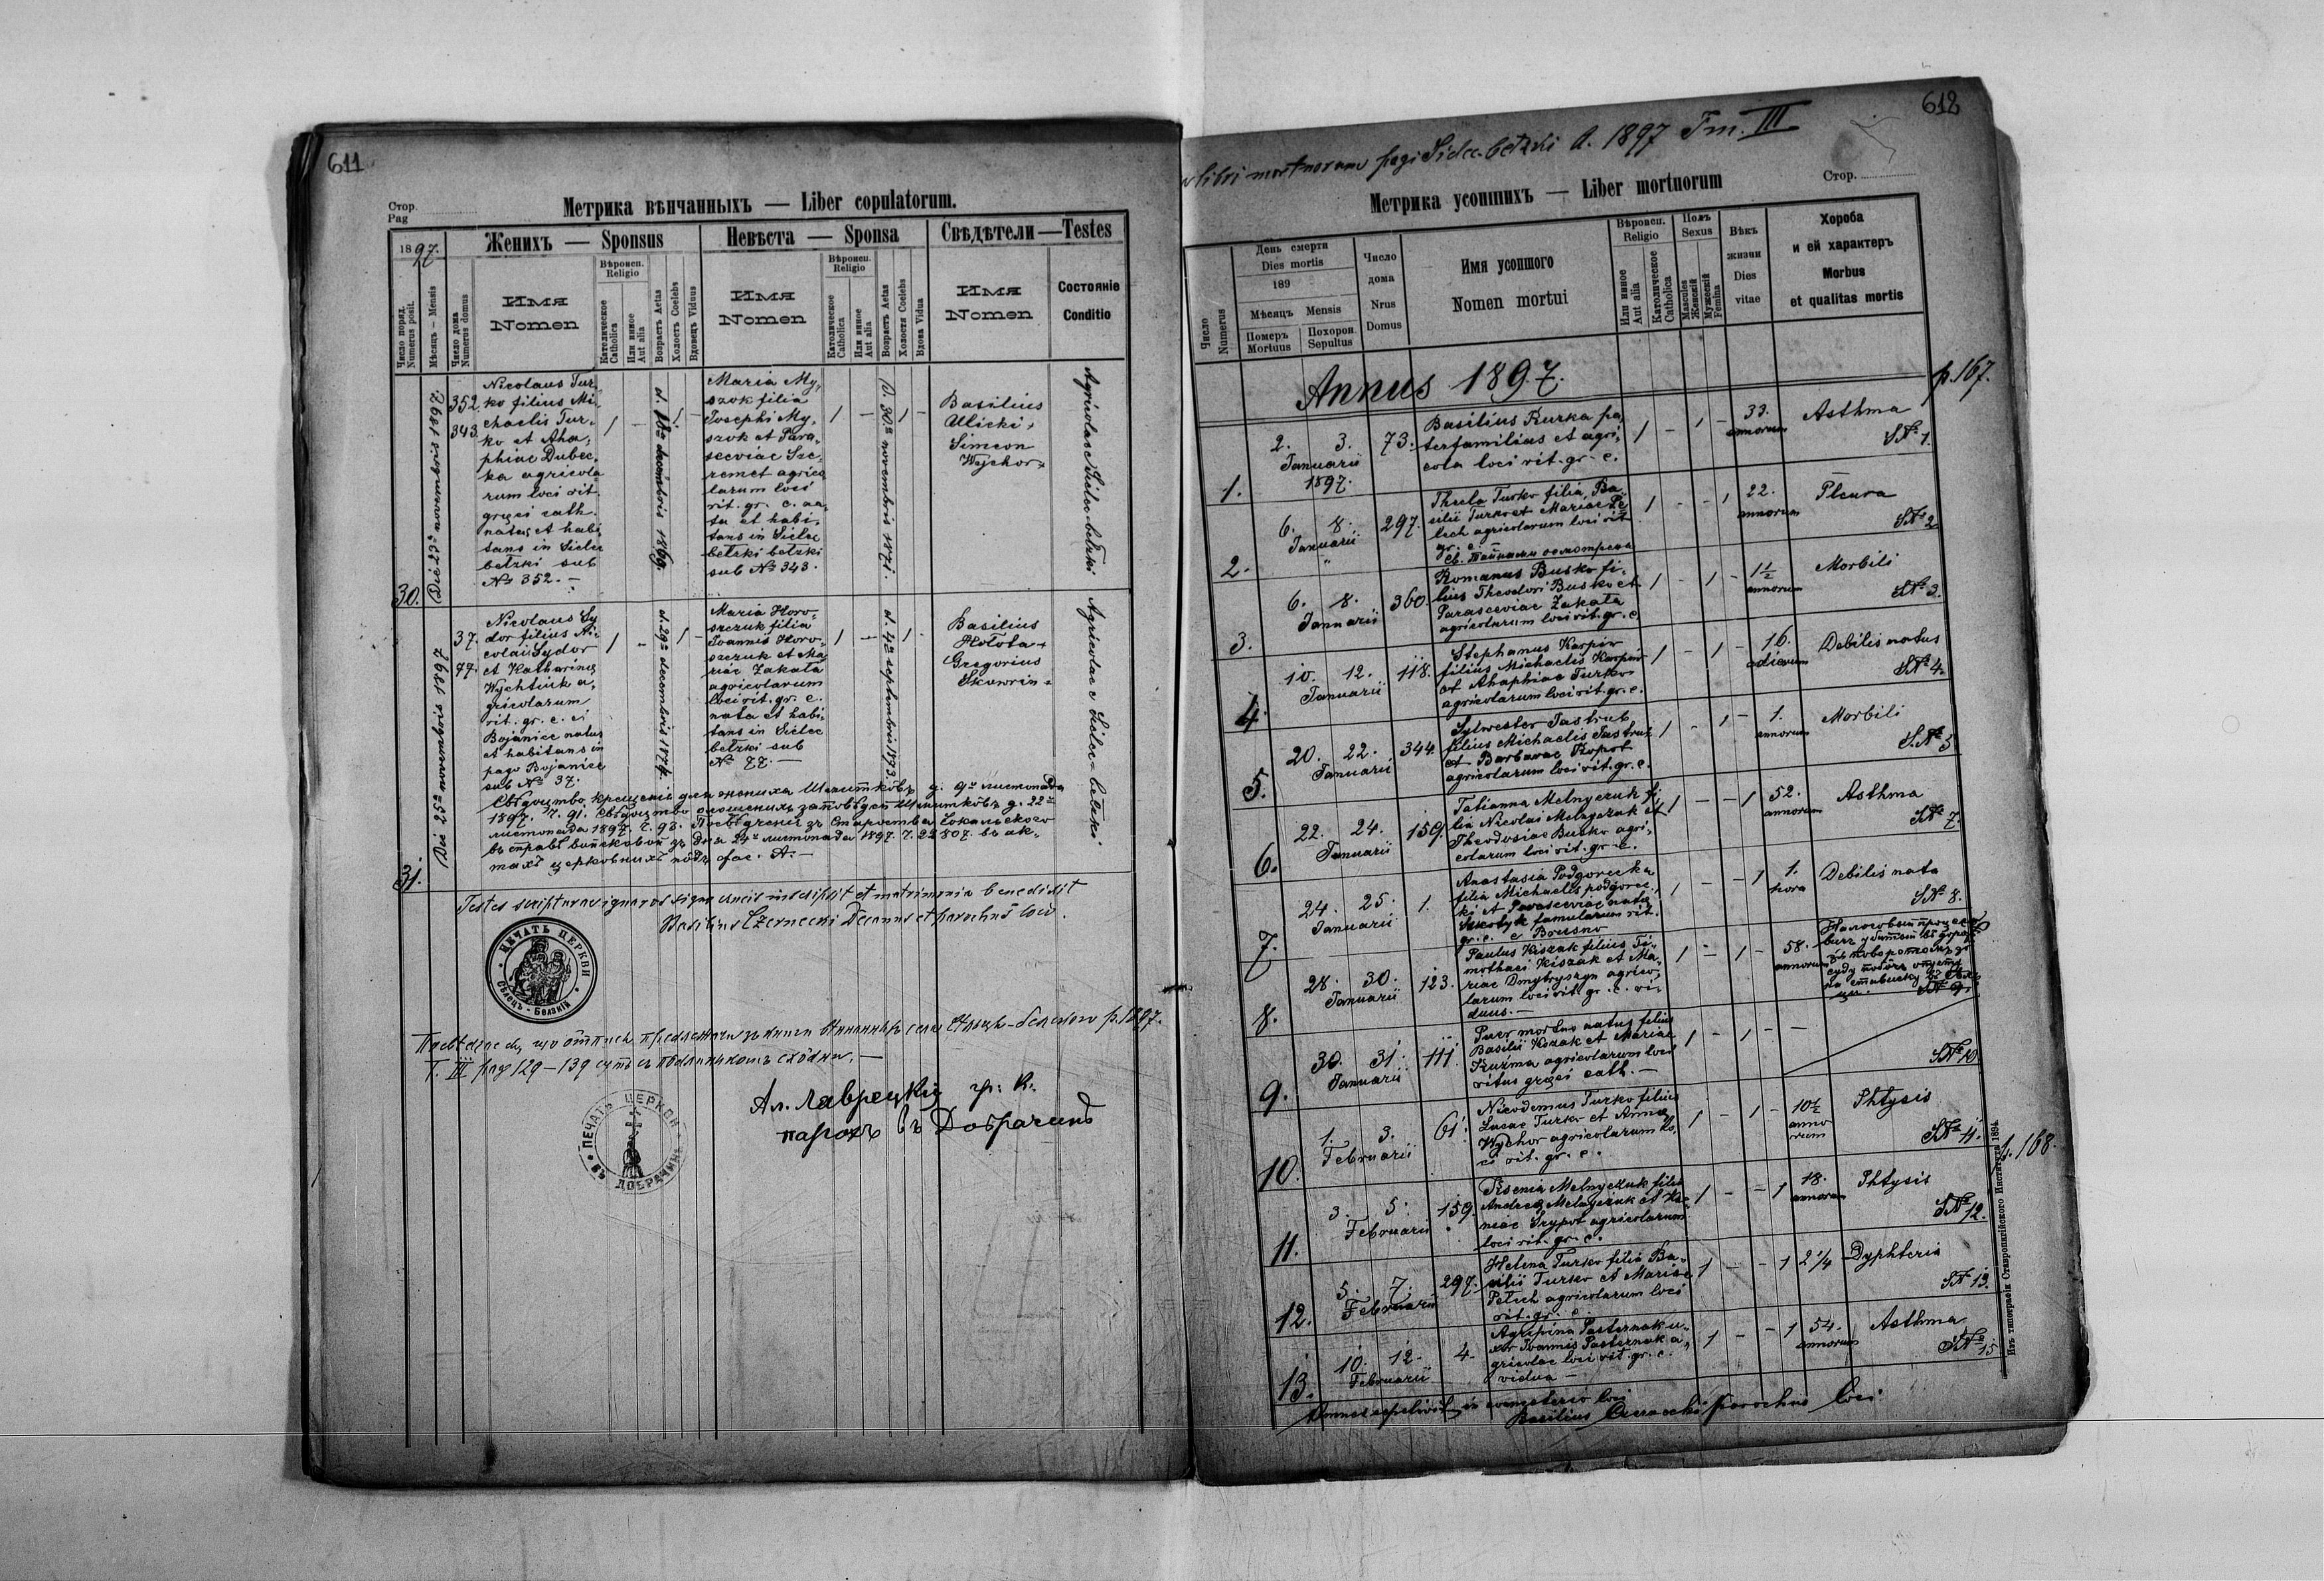 611
Стор.
Pag
Метрика вѣнчанныхъ — Liber copulatorum.
1897.
Женихъ — Sponsus
Невѣста — Sponsa
Свѣдѣтели — Testes
Число поряд.
Numerus posit.
Мѣсяць — Mensis
Число дома
Numerus domus
Имя
Nomen
Вѣроисп.
Religio
Католическое
Catholica
Или иное
Aut alia
Возрастъ Aetas
Холостъ Coelebs
Вдовецъ Viduus
Имя
Nomen
Вѣроисп.
Religio
Католическое
Catholica
Или иное
Aut alia
Возрастъ Aetas
Холоста Coelebs
Вдова Vidua
Имя
Nomen
Состояніе
Conditio
30.
Die 23ª novembris 1897.
352.
343.
Nicolaus Tur-
ko filius Mi-
chaelis Tur-
ko et Aha-
phiae Dubec-
ka agricola
rum loci rit.
gręci cath.
natus et habi
tans in Sielec
bełzki sub
Nº 352. —
1 — 1 —
decembris 1869.
Maria My-
szok filia
Josephi My-
szok et Para-
sceviae Sze-
remet agrico
larum loci
rit. gr. c. na-
ta et habi-
tans in Sielec
bełzki bełzki
sub Nº 343.
1 — 1 —
novembris 1871.
Basilius
Ulicki +
Simeon
Wychor +
Agricolae Sielec bełzki
31.
Die 25ª novembris 1897
37.
77.
Nicolaus Sy
dor filius Ni-
colai Sydor
et Katharinę
Wychtiuk a-
gricolarum
rit. gr. c. ci
Bojanice natus
et habitans in
pago Bojanice
sub Nº 37.
1 - 1 -
d. 29ª decembris 1874.
Maria Horo-
szczuk filia
Joannis Horo-
szczuk et Ma
riae Zakała
agricolarum
loci rit. gr. c.
nata et habi-
tans in Sielec
bełzki sub
Nº 77. —
1 — 1 -
d. 4ª septembris 1873.
Basilius
Hołota +
Gregorius
Skowrin +
Agricolae Sielec-bełzki
Свѣдоцтво крещенія для жениха Шмитковъ д. 9º листопада
1897. Ч. 91. Свѣдоцтво оглошеныхъ заповѣдей Шмитковъ д. 22º
листопада 1897 Ч. 93. Посвѣдченіе зъ Староства Сокальского
въ справѣ войсковой зъ дня 24º листопада 1897. Ч. 22807. въ ак-
тахъ церковныхъ подъ фас. А. —
Testes scripturae ignaros signa crucis inscripsit et matrimonia benedixit
Basilius Czernecki Decanus et parochus loci.
ПЕЧАТЬ ЦЕРКВИ
Сѣлецъ - Белзкій
Посвѣдчаєся, що отписъ
Т. III pag 129 — 139 суть съ подлинникомъ сходни. —
Ал. Лаврецкій гр. к.
парохъ въ Добрачинѣ
ПЕЧАТЬ ЦЕРКОВ
ВЪ ДОБРАЧИНѢ
612
libri mortuorum pagi Sielec-bełzki A. 1897 Tm. III
Метрика усопшихъ — Liber mortuorum
Стор.
Число
Numerus
День смерти
Dies mortis
189
Мѣсяцъ Mensis
Померъ
Mortuus
Похорон.
Sepultus
Число
дома
Nrus
Domus
Имя усопшого
Nomen mortui
Вѣроисп.
Religio
Или иное
Aut alia
Католическое
Catholica
Полъ
Sexus
Mascules
Женскій
Мужескій
Femina
Вѣкъ
жизни
Dies
vitae
Хороба
и ей характеръ
Morbus
et qualitas mortis
Annus 1897.
p. 167.
1.
2. 3.
Januarii
1897.
73.
Basilius Kurka pa-
terfamilias et agri-
cola loci rit. gr. c.
1 - 1 -
33.
annorum
Asthma
SNº 1.
2.
6. 8.
Januarii
297.
Thecla Turko filia Ba-
silii Turko et Mariae Pe
lech agricolarum loci rit
gr. c.
св. Тайнами осмотрена
1 - - 1
22.
annorum
Pleura
SNº 2
3.
6. 8.
Januarii
360.
Romanus Busko fi-
lius Theodori Busko et
Parasceviae Zakała
agricolarum loci rit. gr. c.
1 - 1 -
1½
annorum
Morbili
SNº 3.
4.
10. 12.
Januarii
118.
Stephanus Karpiw
filius Michaelis Karpiw
et Ahaphiae Turko
agricolarum loci rit. gr. c.
1 - 1 -
16.
dierum
Debilis natus
SNº 4.
5.
20. 22.
Januarii
344.
Sylwester Jastrub
filius Michaelis Jastrub
et Barbarae Kopot
agricolarum loci rit. gr. c.
1 - 1 -
1.
annorum
Morbili
S.Nº 5
6.
22. 24.
Januarii
159.
Tatianna Melnyczuk fi-
lia Nicolai Melnyczuk et
Theodosiae Busko agri-
colarum loci rit. gr. c.
1 - - 1
52.
annorum
Asthma
SNº 7.
7.
24. 25.
Januarii
1.
Anastasia Podgorecka
filia Michaelis podgorec-
ki et Parasceviae natae
famularum rit.
gr. c. e Brusno
1 - - 1
1.
hora
Debilis nata
SNº 8.
8.
28. 30.
Januarii
123.
Paulus Kiszak filius Ti-
mothaei Kiszak et Ma-
riae Dmytryszyn agrico-
larum loci rit. gr. c. vi-
duus. —
1 - 1 -
58.
annorum
SNº 9.
9.
30. 31.
Januarii
111.
Puer mortuo natus filius
Basilii Kiszak et Mariae
Kuzma agricolarum loci
ritus gręci cath. —
1 - 1 - —
SNº 10.
10.
1. 3.
Februarii
61.
Nicodemus Turko filius
Lucae Turko et Annae
Wychor agricolarum lo-
ci rit. gr. c.
1 - 1 -
10½
anno
rum
Phtysis
SNº 11.
11.
3. 5.
Februarii
159.
Ksenia Melnyczuk filia
Andreę Melnyczuk et
agricolarum
loci rit. gr. c.
1 - - 1
18.
annorum
Phtysis
SNº 12.
p. 168.
12.
5. 7.
Februarii
297.
Helena Turko filia Ba-
silii Turko et Mariae
Pełech agricolarum loci
rit. gr. c.
1 - - 1
2 1/4
Dyphteria
SNº 13.
13.
10. 12.
Februarii
4.
Agripina Pasternak u-
xor Joannis Pasternak a-
gricolae loci rit. gr. c.
vidua —
1 - - 1
54.
annorum
Asthma
SNº 15
Omnes sepelivit in coemeterio loci
Basilius Czernecki parochus loci.
Изъ типографіи Ставропигійского Института 1894.